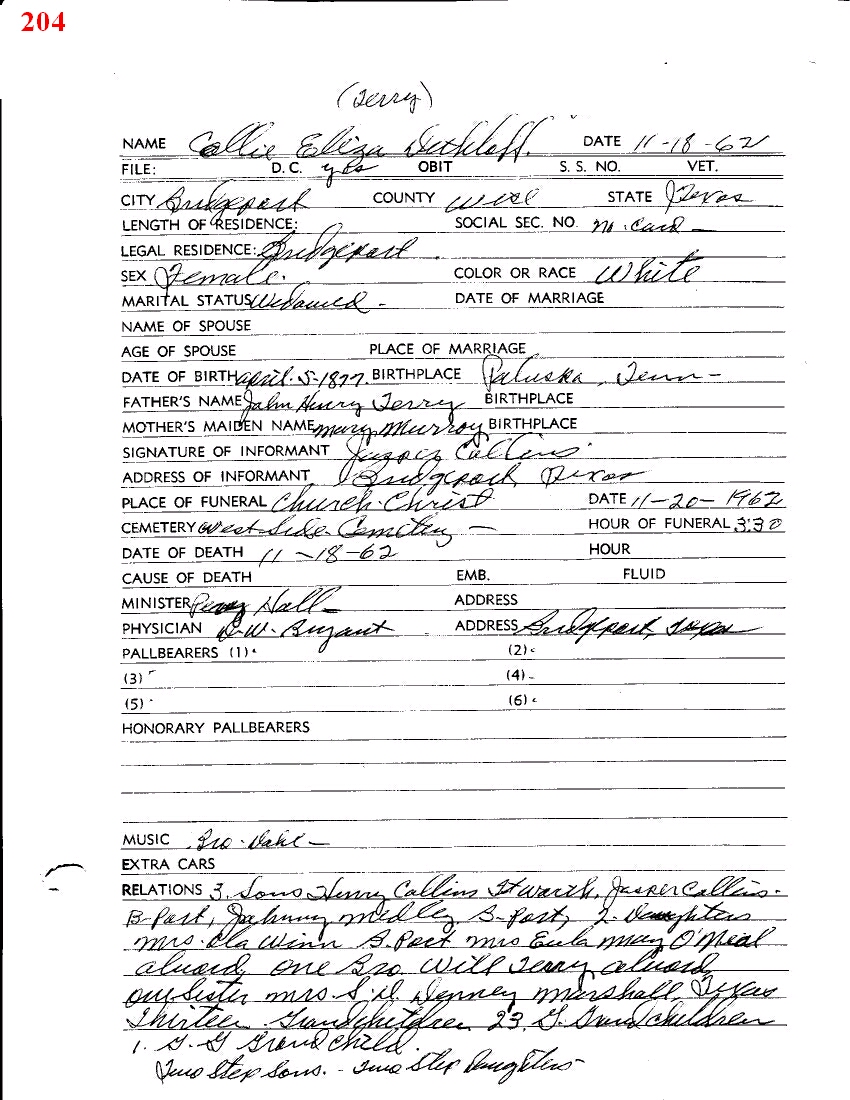 204
(Terry)
NAME Collie Eliza Dethloff. DATE 11-18-62
FILE: D.C. yes OBIT S. S. NO. VET.
CITY Bridgeport COUNTY Wise STATE Texas
LENGTH OF RESIDENCE: SOCIAL SEC. NO. no. card -
LEGAL RESIDENCE: Bridgeport.
SEX Female. COLOR OR RACE White
MARITAL STATUS Widowed - DATE OF MARRIAGE
NAME OF SPOUSE
AGE OF SPOUSE PLACE OF MARRIAGE
DATE OF BIRTH april. 5-1877. BIRTHPLACE Paluska, Tenn-
FATHER'S NAME John Henry Terry BIRTHPLACE
MOTHER'S MAIDEN NAME mary Murroy BIRTHPLACE
SIGNATURE OF INFORMANT Collins
ADDRESS OF INFORMANT Bridgeport, Texas
PLACE OF FUNERAL Church. Christ DATE 11-20-1962
CEMETERY West Side Cemetery - HOUR OF FUNERAL 3:30
DATE OF DEATH 11-18-62 HOUR
CAUSE OF DEATH EMB. FLUID
MINISTER Hall - ADDRESS
PHYSICIAN D.W. Bryant ADDRESS Bridgeport, Texas
PALLBEARERS (1) (2)
(3) (4)
(5) (6)
HONORARY PALLBEARERS
MUSIC Bro. Dahl -
EXTRA CARS
RELATIONS 3. Sons Henry Collins Ft Warth, Jasper Collins-
B-Port, Johnny medley B-Port, 2- Daughters
mrs. Ola Winn B. Port mrs Eula may O'Neal
alvord, one Bro Will Terry, alvord,
one Sister mrs. S. D. Denney marshall Texas
Thirteen Grandchildren 23, G. Grandchildren
1. G. G Grand child.
Two Step Sons. - Two Step Daughters-